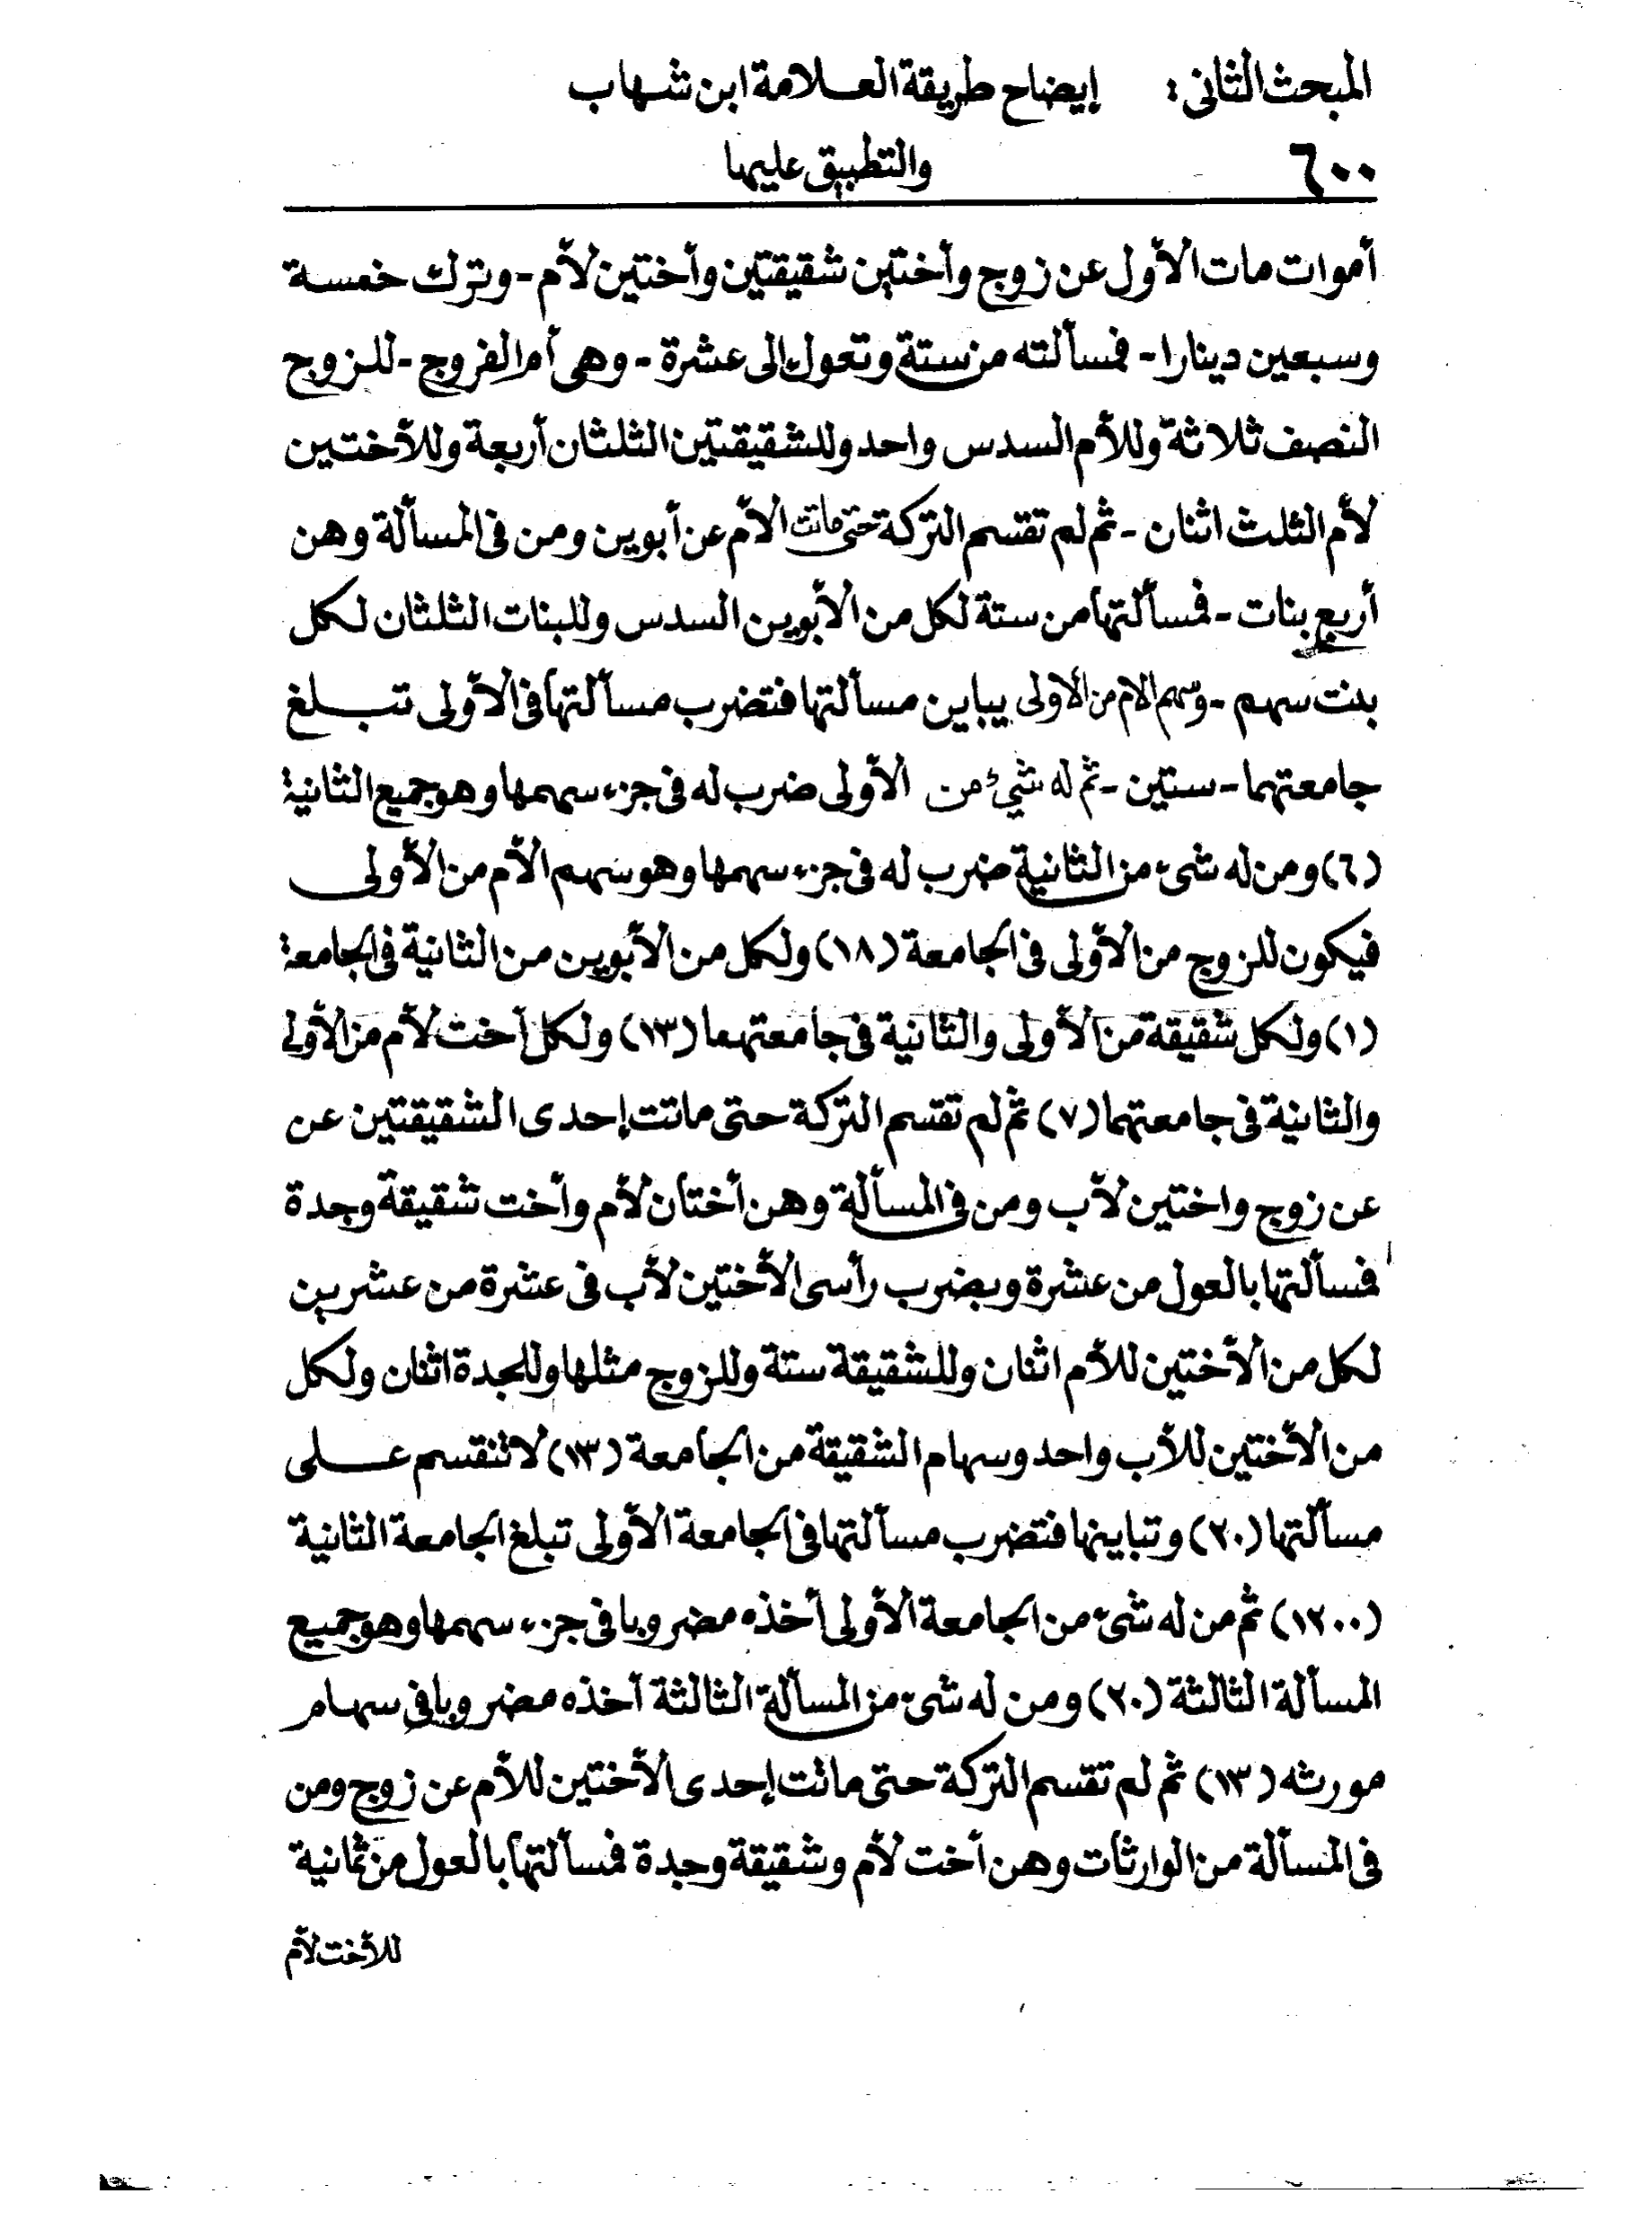 المبحث الثانى : إيضاح طريقة العلامة ابن شهاب
٦٠٠ والتطبيق عليها
أموات مات الأول عن زوج وأختين شقيقتين وأختين لأم - وترك خمسة
وسبعين دينارا - فمسألته من ستة وتعول إلى عشرة - وهى أم الفروج - للزوج
النصف ثلاثة وللأم السدس واحد وللشقيقتين الثلثان أربعة وللأختين
لأم الثلث اثنان - ثم لم تقسم التركة حتى ماتت الأم عن أبوين ومن فى المسألة وهن
أربع بنات - فمسألتها من ستة لكل من الأبوين السدس وللبنات الثلثان لكل
بنت سهم - وسهم الام من الأولى يباين مسألتها فتضرب مسألتها فى الأولى تبلغ
جامعتهما - ستين - ثم له شيء من الأولى ضرب له فى جزء سهمها وهو جميع الثانية
(٦) ومن له شىء من الثانية ضرب له فى جزء سهمها وهو سهم الأم من الأولى
فيكون للزوج من الأولى فى الجامعة (١٨) ولكل من الأبوين من الثانية فى الجامعة
(١) ولكل شقيقة من الأولى والثانية فى جامعتهما (١٣) ولكل أخت لأم من الأولى
والثانية فى جامعتهما (٧) ثم لم تقسم التركة حتى ماتت إحدى الشقيقتين عن
عن زوج واختين لأب ومن فى المسألة وهن أختان لأم وأخت شقيقة وجدة
فمسألتها بالعول من عشرة وبضرب رأسى الأختين لأب فى عشرة من عشرين
لكل من الأختين للأم اثنان وللشقيقة ستة وللزوج مثلها وللجدة اثنان ولكل
من الأختين للأب واحد وسهام الشقيقة من الجامعة (١٣) لا تنقسم على
مسألتها (٢٠) وتباينها فتضرب مسألتها فى الجامعة الأولى تبلغ الجامعة الثانية
(١٢٠٠) ثم من له شىء من الجامعة الأولى أخذه مضروبا فى جزء سهمها وهو جميع
المسألة الثالثة (٢٠) ومن له شىء من المسألة الثالثة أخذه مضروبا فى سهام
مورثه (١٣) ثم لم تقسم التركة حتى ماتت إحدى الأختين للأم عن زوج ومن
فى المسألة من الوارثات وهن أخت لأم وشقيقة وجدة فمسألتها بالعول من ثمانية
للأخت لأم